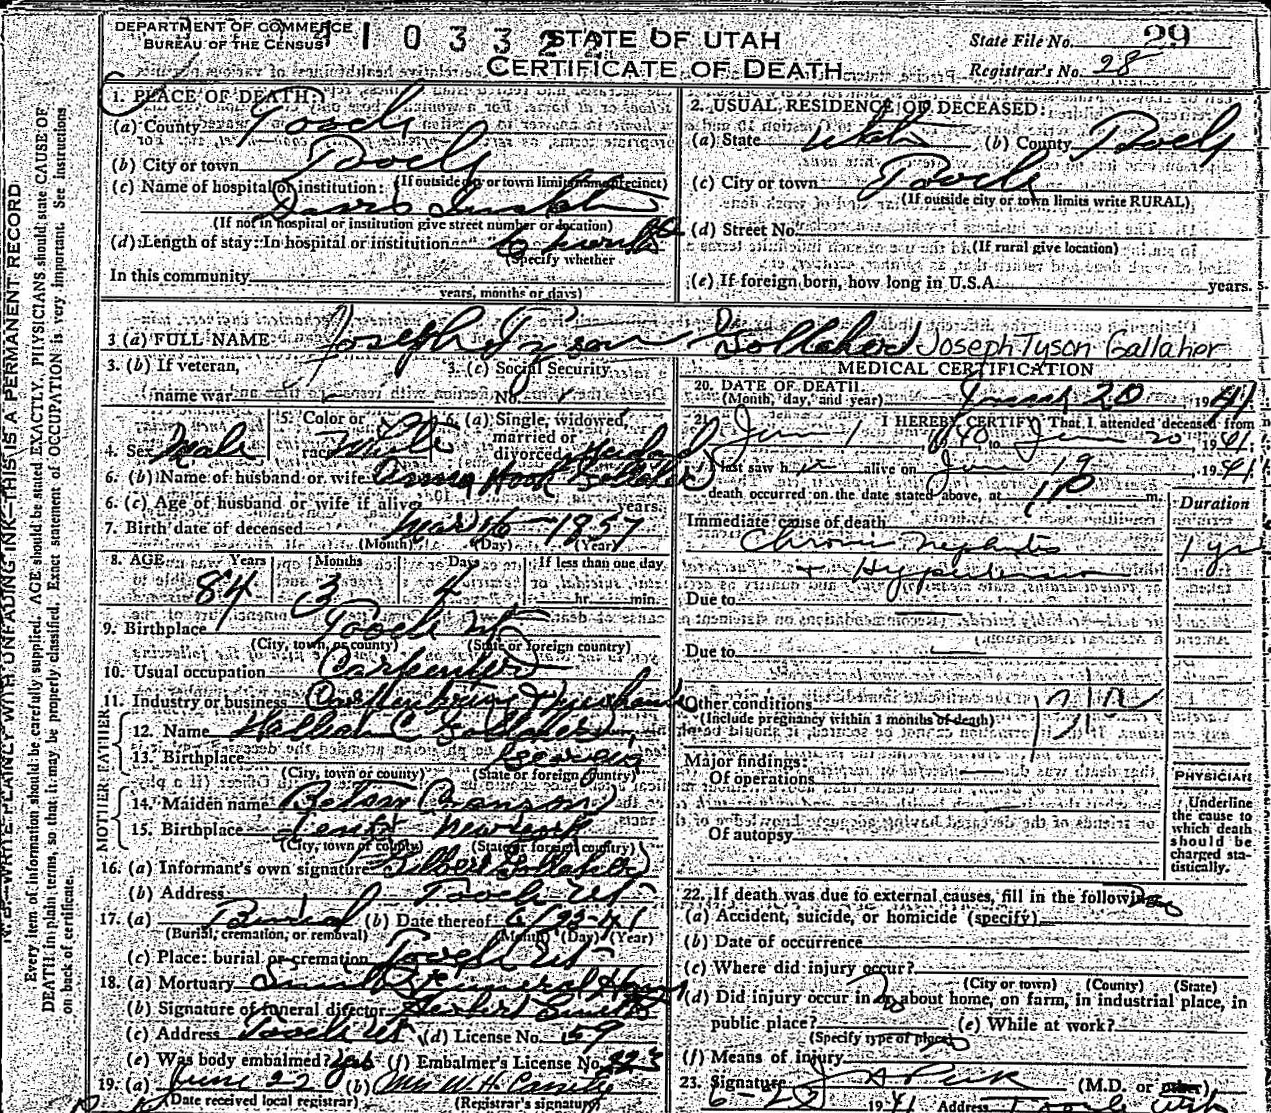 DEPARTMENT OF COMMERCE
BUREAU OF THE CENSUS
STATE OF UTAH
CERTIFICATE OF DEATH
State File No. 29
Registrar's No. 28
N. B.—WRITE PLAINLY WITH UNFADING INK—THIS IS A PERMANENT RECORD
Every item of information should be carefully supplied. AGE should be stated EXACTLY. PHYSICIANS should state CAUSE OF
DEATH in plain terms, so that it may be properly classified. Exact statement of OCCUPATION is very important. See instructions
on back of certificate.
1. PLACE OF DEATH:
(a) County Tooele
(b) City or town Tooele
(If outside city or town limits name precinct)
(c) Name of hospital or institution:
Davis
(If not in hospital or institution give street number or location)
(d) Length of stay: In hospital or institution 6 months
(Specify whether
In this community
years, months or days)
2. USUAL RESIDENCE OF DECEASED:
(a) State Utah (b) County Tooele
(c) City or town Tooele
(If outside city or town limits write RURAL)
(d) Street No.
(If rural give location)
(e) If foreign born, how long in U.S.A. years.
3 (a) FULL NAME Joseph Tyson Gollaher Joseph Tyson Gallaher
3. (b) If veteran,
name war
3. (c) Social Security
No.
4. Sex Male
5. Color or
race White
6. (a) Single, widowed,
married or
divorced Widowed
6. (b) Name of husband or wife Anna Hook Gollaher
6. (c) Age of husband or wife if alive years.
7. Birth date of deceased Mar 16 - 1857
(Month) (Day) (Year)
8. AGE Years Months Days If less than one day
84 3 4 hr. min.
9. Birthplace Tooele Ut
(City, town, or county) (State or foreign country)
10. Usual occupation Carpenter
11. Industry or business
FATHER
12. Name William C Gollaher
13. Birthplace
(City, town or county) (State or foreign country)
MOTHER
14. Maiden name
15. Birthplace
(City, town or county) (State or foreign country)
16. (a) Informant's own signature Gilbert Gollaher
(b) Address Tooele Ut
17. (a) Burial (b) Date thereof 6/23-41
(Burial, cremation, or removal) (Month) (Day) (Year)
(c) Place: burial or cremation Tooele Ut
18. (a) Mortuary Funeral Home
(b) Signature of funeral director Herbert
(c) Address Tooele Ut (d) License No. 59
(e) Was body embalmed? Yes (f) Embalmer's License No. 223
19. (a) June 22 (b) Mrs W. H.
(Date received local registrar) (Registrar's signature)
MEDICAL CERTIFICATION
20. DATE OF DEATH
(Month, day, and year) June 20, 1941
21. I HEREBY CERTIFY That I attended deceased from
June 1 1940 to June 20, 1941
I last saw h alive on June 19, 1941
death occurred on the date stated above, at m.
Duration
Immediate cause of death
Chronic nephritis 1 yr
+ Hypertension
Due to
Due to
Other conditions
(Include pregnancy within 3 months of death)
Major findings:
Of operations
Of autopsy
PHYSICIAN
Underline
the cause to
which death
should be
charged sta-
tistically.
22. If death was due to external causes, fill in the following
(a) Accident, suicide, or homicide (specify)
(b) Date of occurrence
(c) Where did injury occur?
(City or town) (County) (State)
(d) Did injury occur in or about home, on farm, in industrial place, in
public place? (e) While at work?
(Specify type of place)
(f) Means of injury
23. Signature J A Peck (M.D. or other)
6-22 1941 Address Tooele Utah